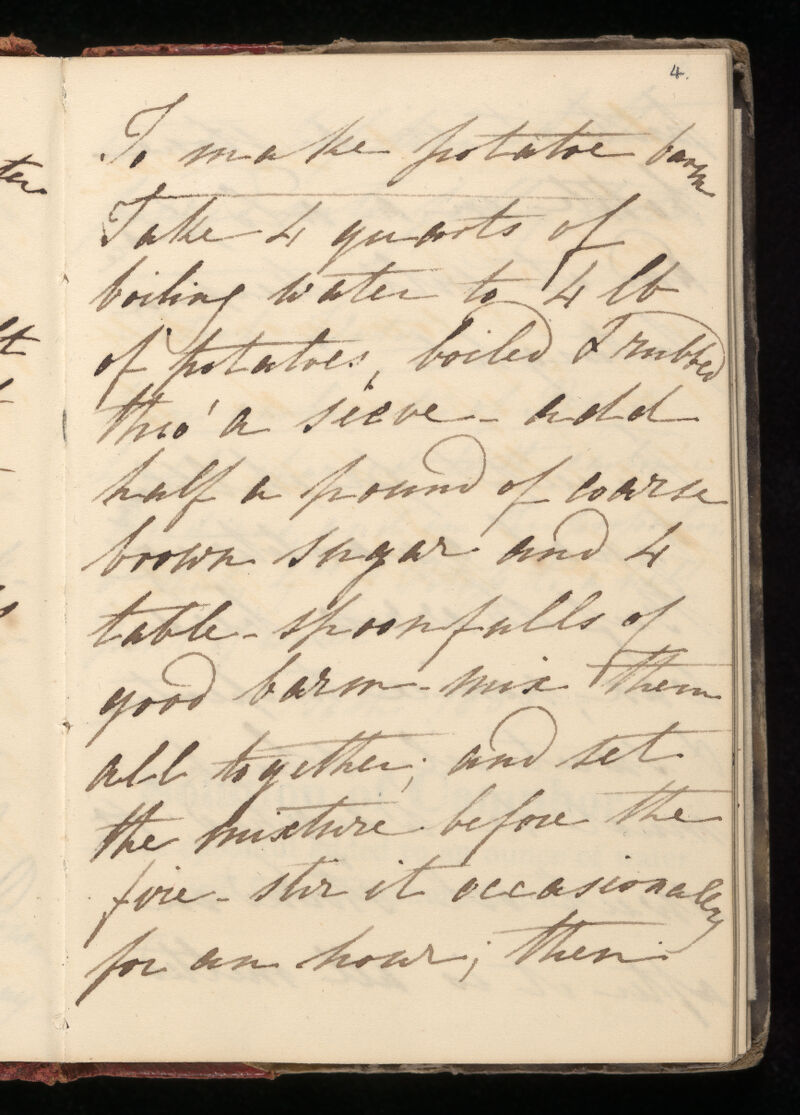 4.
To make potatoe barm
Take 4 quarts of
boiling water to 4 lb
of potatoes, boiled & rubbed
thro' a sieve - add
half a pound of coarse
brown sugar and 4
table-spoonfulls of
good barm - mix them
all together; and set
the mixture before the
fire - stir it occasionally
for an hour; then